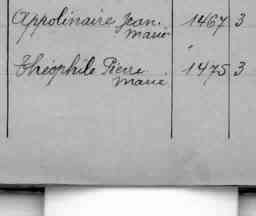 Appolinaire Jean 1467 3
Marie
"
Théophile Pierre 1475 3
Marie